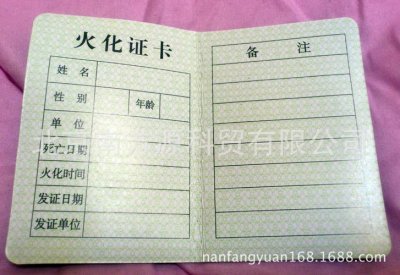 火化证卡
姓名
性别 年龄
单位
死亡日期
火化时间
发证日期
发证单位
备注
源科贸有限公司
nanfangyuan168.1688.com